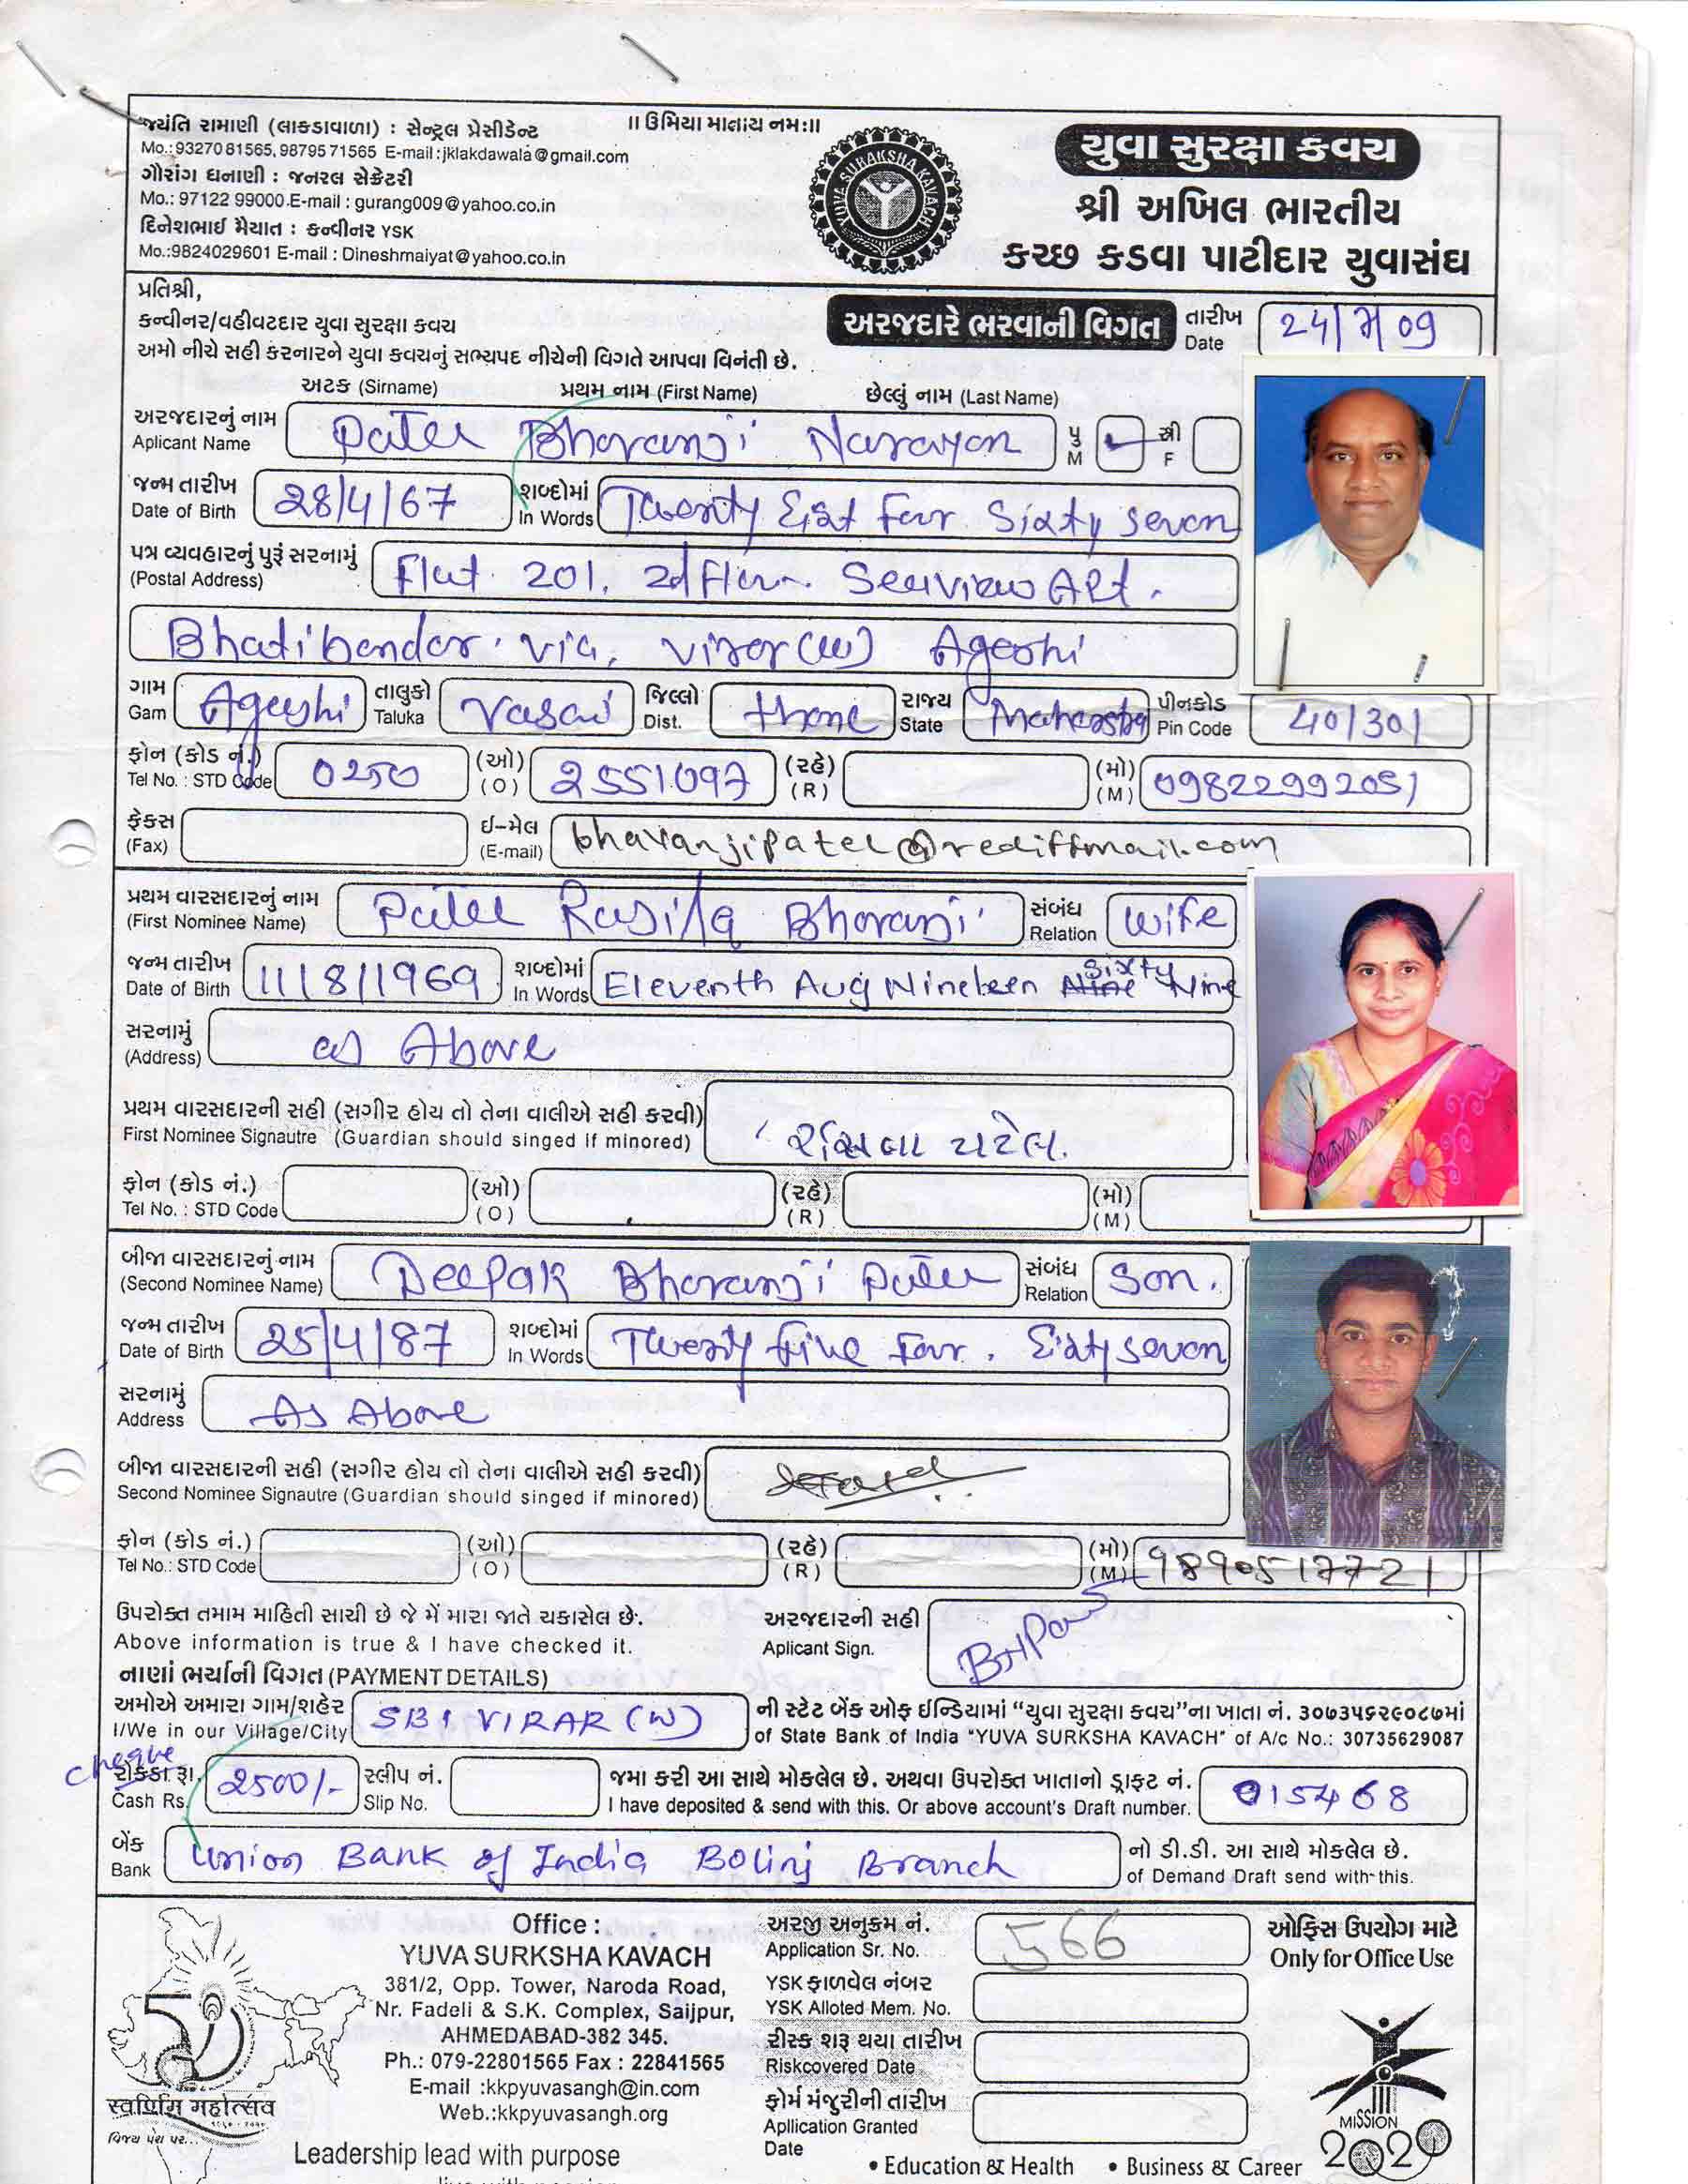 જયંતિ રામાણી (લાકડાવાળા) : સેન્ટ્રલ પ્રેસીડેન્ટ
Mo.:93270 81565, 98795 71565 E-mail :jklakdawala@gmail.com
ગૌરાંગ ધનાણી : જનરલ સેક્રેટરી
Mo.: 97122 99000.E-mail : gurang009@yahoo.co.in
દિનેશભાઈ મૈયાત : કન્વીનર YSK
Mo.:9824029601 E-mail : Dineshmaiyat@yahoo.co.in
।। ઉમિયા માતાય નમઃ।।
YUVA SURAKSHA KAVACH
યુવા સુરક્ષા કવચ
શ્રી અખિલ ભારતીય
કચ્છ કડવા પાટીદાર યુવાસંઘ
પ્રતિશ્રી,
કન્વીનર/વહીવટદાર યુવા સુરક્ષા કવચ
અમો નીચે સહી કરનારને યુવા કવચનું સભ્યપદ નીચેની વિગતે આપવા વિનંતી છે.
અરજદારે ભરવાની વિગત
તારીખ Date 24/7/09
અટક (Sirname) પ્રથમ નામ (First Name) છેલ્લું નામ (Last Name)
અરજદારનું નામ Aplicant Name Patel Bhavanji Narayan પુ M સ્ત્રી F
જન્મ તારીખ Date of Birth 28/4/67 શબ્દોમાં In Words Twenty Eist Four Sixty Seven
પત્ર વ્યવહારનું પુરૂં સરનામું (Postal Address) Flat 201, 2d Floor Seaview Apt.
Bhatibandar, via, Virar (W) Agashi
ગામ Gam Agashi તાલુકો Taluka Vasai જિલ્લો Dist. Thane રાજ્ય State પીનકોડ Pin Code 401301
ફોન (કોડ નં.) Tel No. : STD Code 0250 (ઓ) (O) 2551097 (રહે) (R) (મો) (M) 09822992051
ફેક્સ (Fax) ઈ-મેલ (E-mail) bhavanjipatel@rediffmail.com
પ્રથમ વારસદારનું નામ (First Nominee Name) Patel Rasila Bhavanji સંબંધ Relation Wife
જન્મ તારીખ Date of Birth 11/8/1969 શબ્દોમાં In Words Eleventh Aug Nineteen Sixty Nine
સરનામું (Address) as Above
પ્રથમ વારસદારની સહી (સગીર હોય તો તેના વાલીએ સહી કરવી)
First Nominee Signautre (Guardian should singed if minored)
પટેલ.
ફોન (કોડ નં.) Tel No. : STD Code (ઓ) (O) (રહે) (R) (મો) (M)
બીજા વારસદારનું નામ (Second Nominee Name) Deepak Bhavanji Patel સંબંધ Relation Son.
જન્મ તારીખ Date of Birth 25/4/87 શબ્દોમાં In Words Twenty five Four. Eidty seven
સરનામું Address As Above
બીજા વારસદારની સહી (સગીર હોય તો તેના વાલીએ સહી કરવી)
Second Nominee Signautre (Guardian should singed if minored)
ફોન (કોડ નં.) Tel No.: STD Code (ઓ) (O) (રહે) (R) (મો) (M) 9890517721
ઉપરોક્ત તમામ માહિતી સાચી છે જે મેં મારા જાતે ચકાસેલ છે.
Above information is true & I have checked it.
અરજદારની સહી Aplicant Sign.
નાણાં ભર્યાની વિગત (PAYMENT DETAILS)
અમોએ અમારા ગામ/શહેર I/We in our Village/City SBI VIRAR (W)
ની સ્ટેટ બેંક ઓફ ઈન્ડિયામાં “યુવા સુરક્ષા કવચ”ના ખાતા નં. ૩૦૭૩૫૬૨૯૦૮૭માં
of State Bank of India "YUVA SURKSHA KAVACH" of A/c No.: 30735629087
cheque
રોકડા રૂા. Cash Rs. 2500/- સ્લીપ નં. Slip No.
જમા કરી આ સાથે મોકલેલ છે. અથવા ઉપરોક્ત ખાતાનો ડ્રાફ્ટ નં.
I have deposited & send with this. Or above account's Draft number. 015468
બેંક Bank Union Bank of India Bolinj Branch
નો ડી.ડી. આ સાથે મોકલેલ છે.
of Demand Draft send with this.
Office :
YUVA SURKSHA KAVACH
381/2, Opp. Tower, Naroda Road,
Nr. Fadeli & S.K. Complex, Saijpur,
AHMEDABAD-382 345.
Ph.: 079-22801565 Fax : 22841565
E-mail :kkpyuvasangh@in.com
Web.:kkpyuvasangh.org
50
स्वर्णिम महोत्सव
Leadership lead with purpose
અરજી અનુક્રમ નં. Application Sr. No. 566
YSK ફાળવેલ નંબર YSK Alloted Mem. No.
રીસ્ક શરૂ થયા તારીખ Riskcovered Date
ફોર્મ મંજુરીની તારીખ Apllication Granted Date
ઓફિસ ઉપયોગ માટે
Only for Office Use
MISSION
2020
• Education & Health • Business & Career